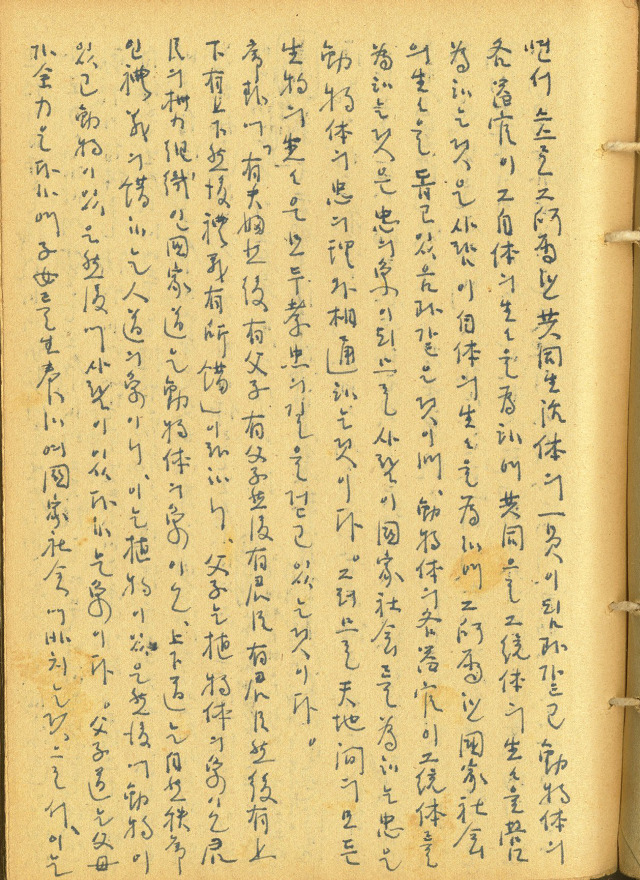 면서 스스로 그 所屬된 共同生活体의 一員이 됨과 같고 動物体의
各器官이 그 自体의 生生을 爲하며 共同으로 그 統体의 生生을 營
爲하는 것은 사람이 自体의 生生을 爲하며 그 所屬된 國家社会
의 生生을 돕고 있음과 같은 것이며, 動物体의 各器官이 그 統体를
爲하는 것은 忠의 象이 되므로 사람이 國家社会를 爲하는 忠은
動物体의 忠의 理와 相通하는 것이다。그러므로 天地間의 모든
生物의 生生은 모두 孝忠의 길을 걷고 있는 것이다。
序卦에「有夫婦然後有父子 有父子然後有君臣 有君臣然後有上
下 有上下然後禮義有所錯」이라 하니、父子는 植物体의 象이오 君
臣의 權力組織인 國家道는 動物体의 象이오、上下道는 自然秩序
인 禮義의 錯하는 人道의 象이니、이는 植物이 있은 然後에 動物이
있고 動物이 있은 然後에 사람이 있다 하는 象이다。父子道는 父母
가 全力을 다하여 子女를 生養하며 國家社会에 바치는 것으로서、이는